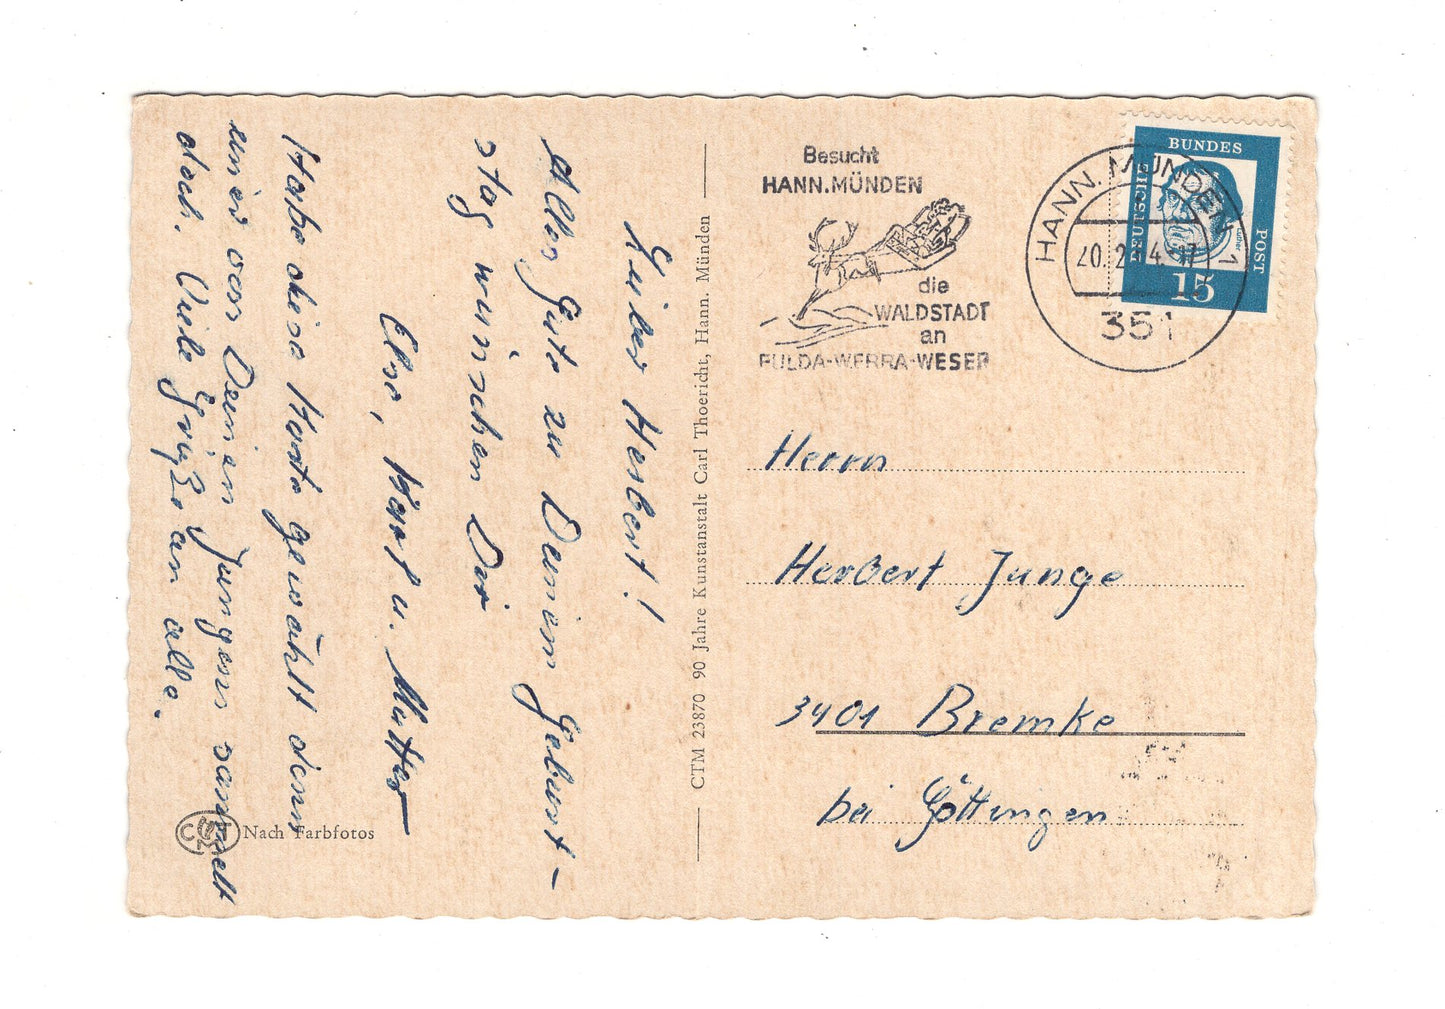 Lieber Herbert!
Alles Gute zu Deinem Geburts-
tag wünschen Dir
Else, Karl u. Mutter
Habe diese Karte gewählt denn
einer von Deinen Jungens sammelt
doch. Viele Grüße an alle.
Nach Farbfotos
CTM 23870 90 Jahre Kunstanstalt Carl Thoericht, Hann. Münden
Besucht
HANN. MÜNDEN
die
WALDSTADT
an
FULDA-WERRA-WESER
HANN. MÜNDEN 1
20. 2. 64
351
DEUTSCHE
BUNDES
POST
Luther
15
Herrn
Herbert Junge
3401 Bremke
bei Göttingen